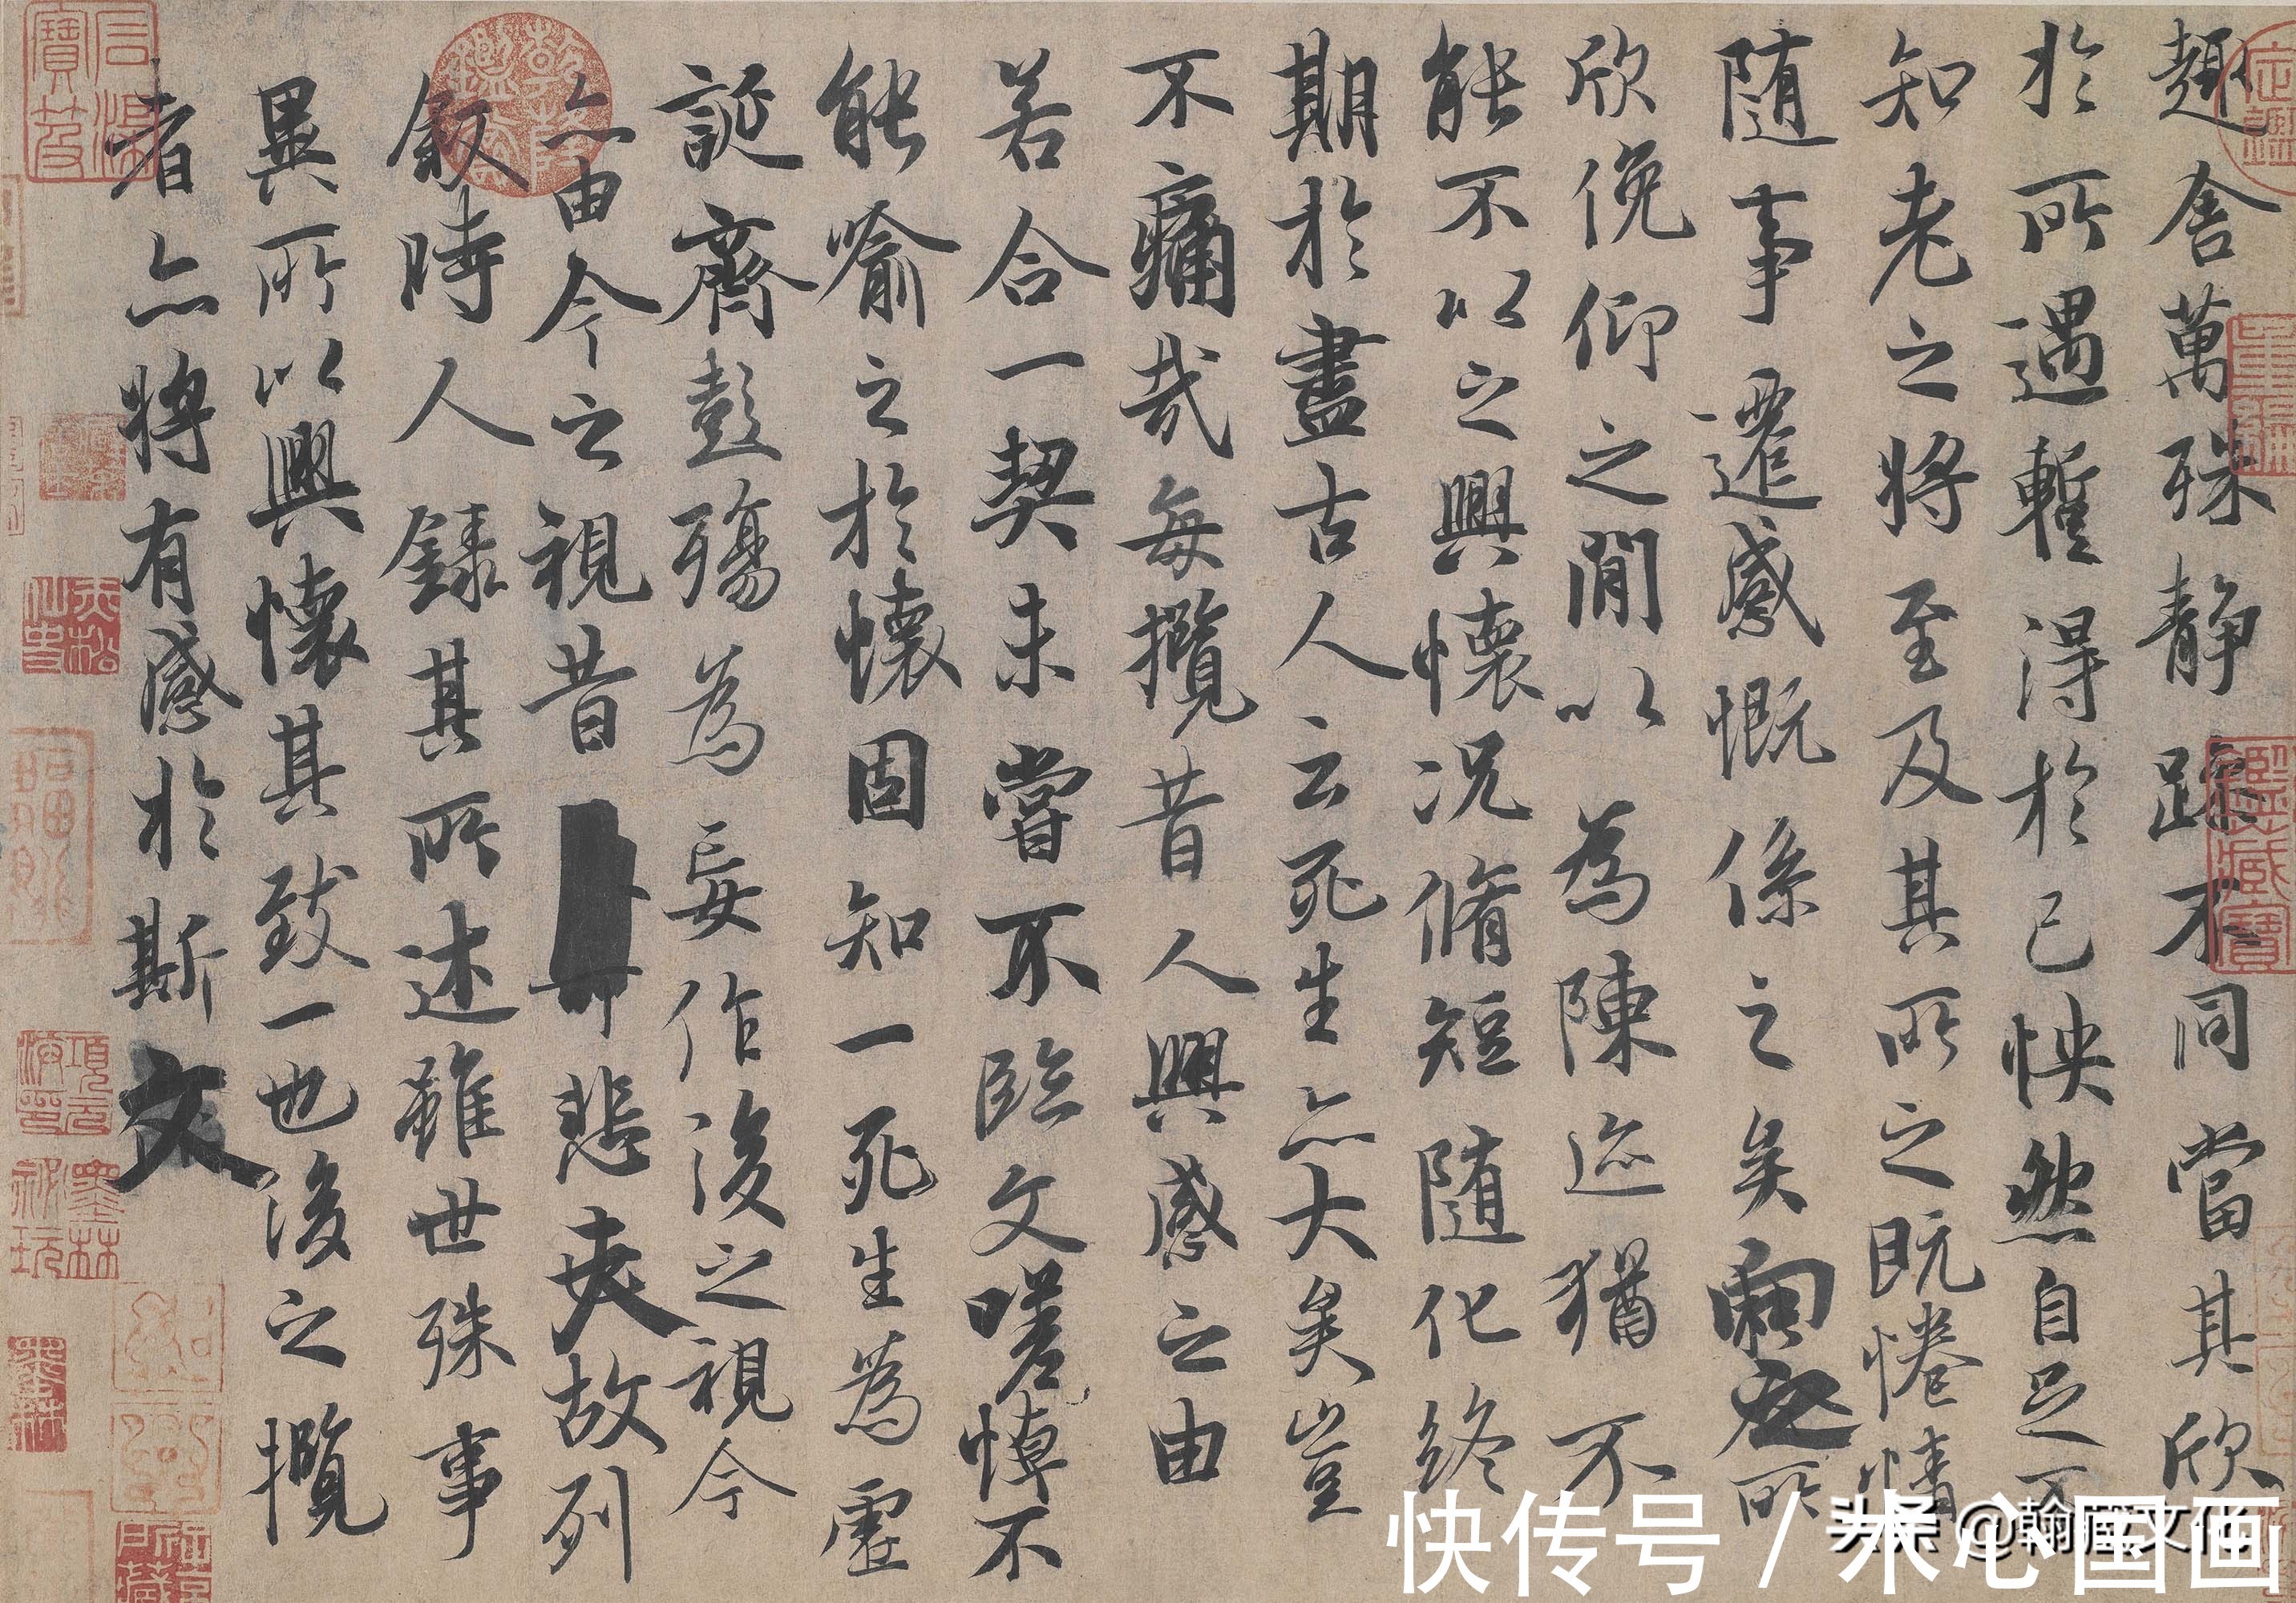 趣舍萬殊静躁不同當其欣
於所遇蹔得於己怏然自足不
知老之將至及其所之既惓情
随事遷感慨係之矣向之所
欣俛仰之閒以為陳迹猶不
能不以之興懷況脩短随化終
期於盡古人云死生亦大矣豈
不痛哉每攬昔人興感之由
若合一契未嘗不臨文嗟悼不
能喻之於懷固知一死生為虛
誕齊彭殤為妄作後之視今
亦由今之視昔悲夫故列
叙時人錄其所述雖世殊事
異所以興懷其致一也後之攬
者亦將有感於斯文
快传号 / 米心国画